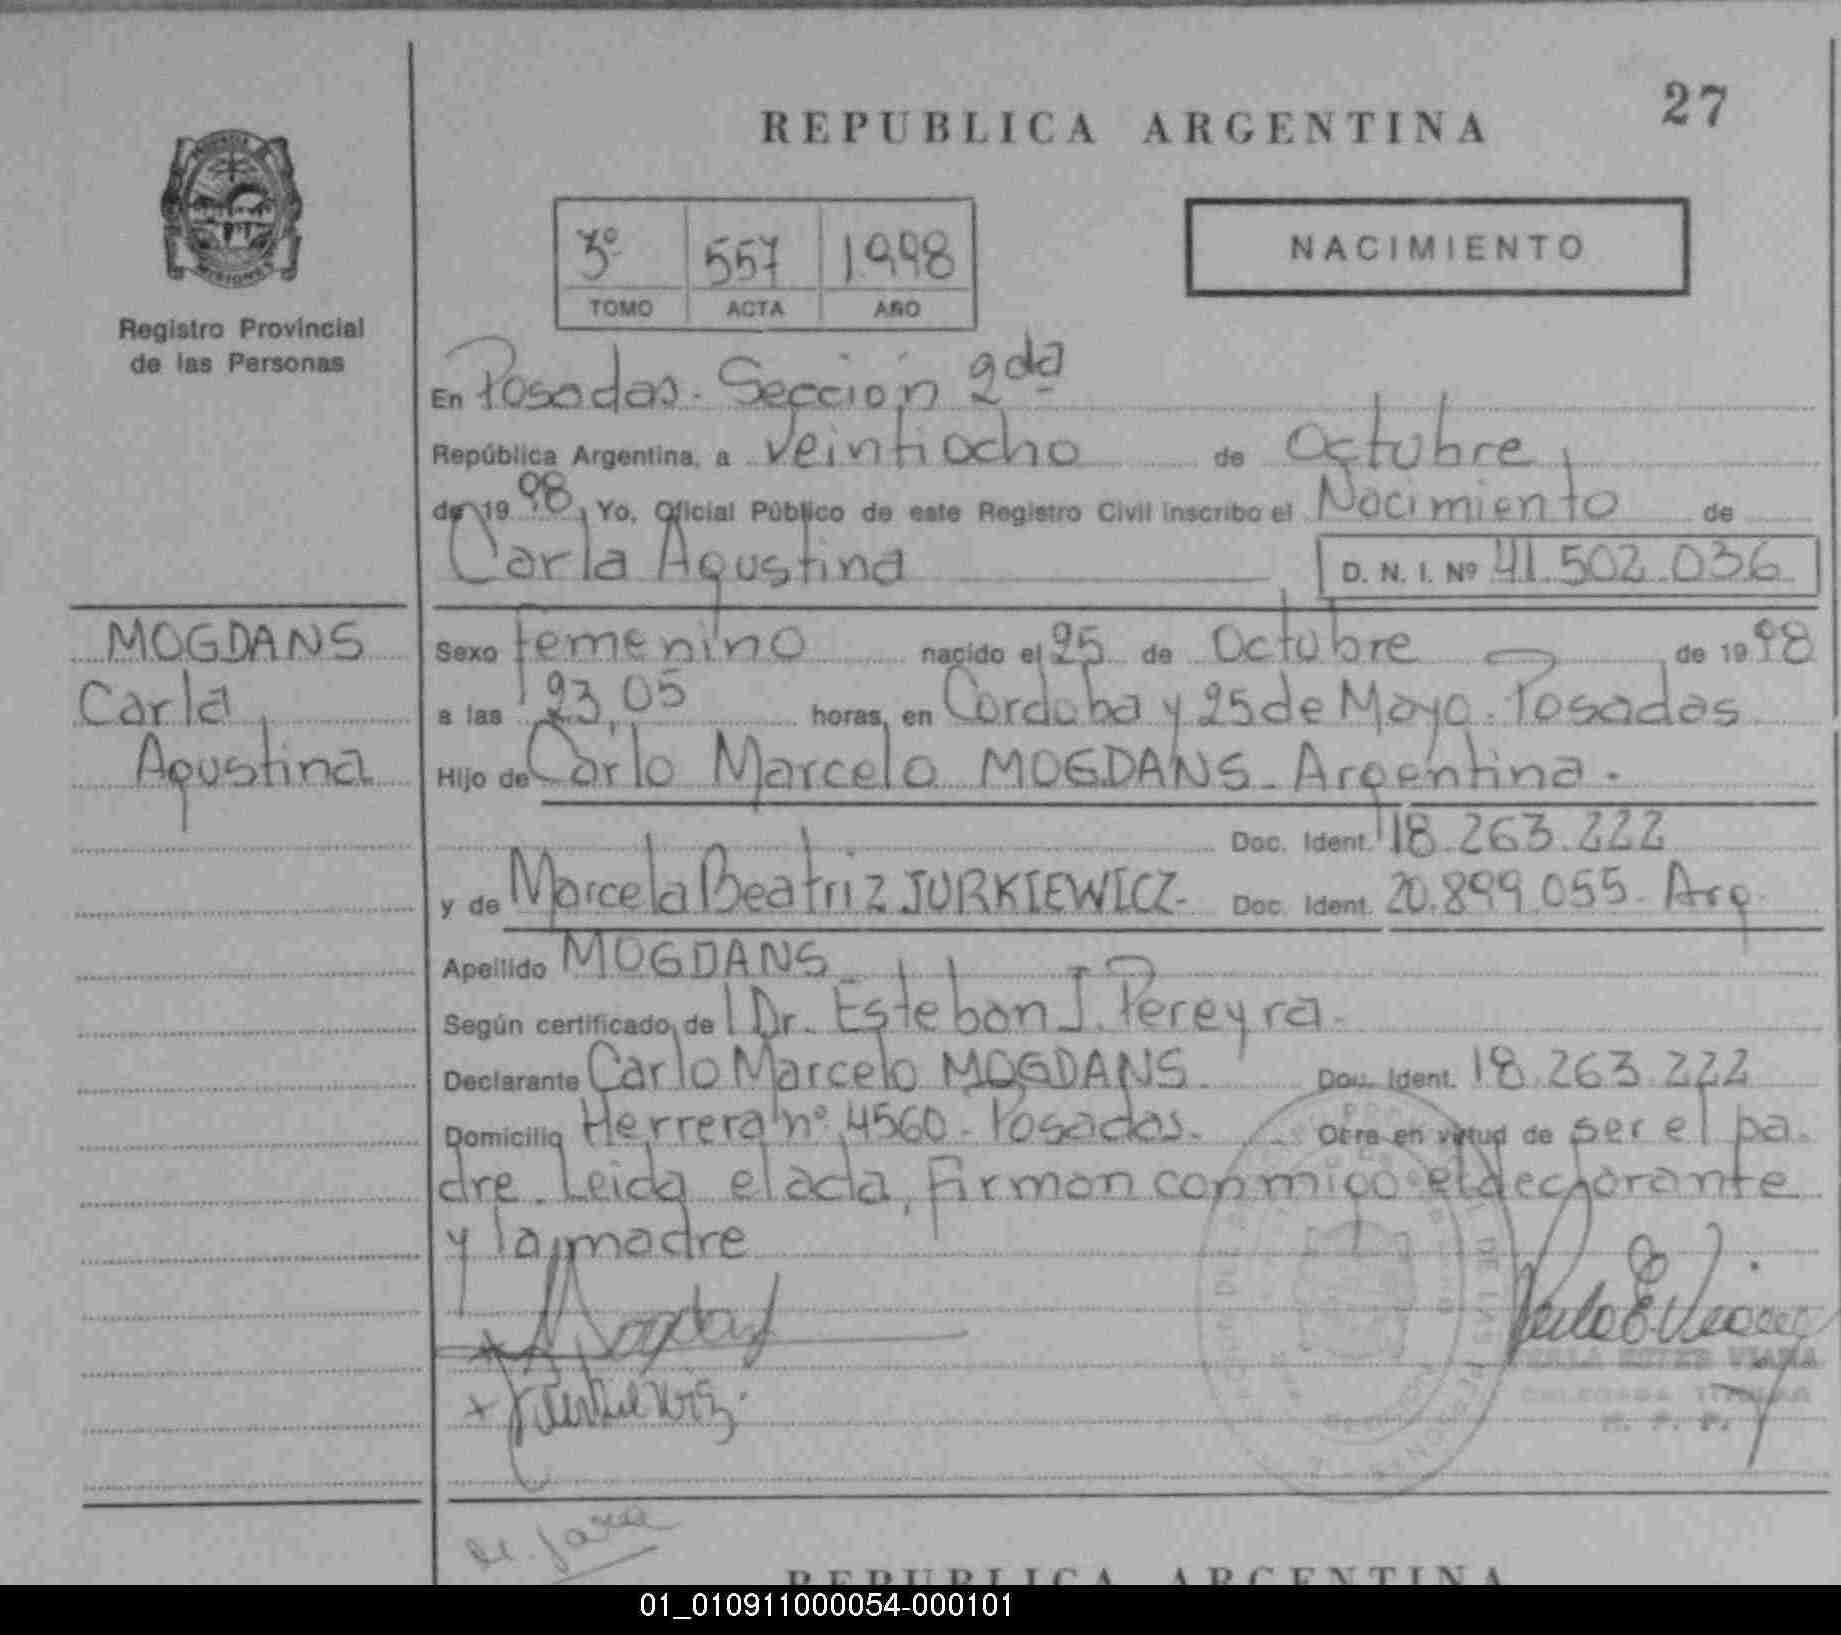 REPUBLICA ARGENTINA
27
MISIONES
Registro Provincial
de las Personas
3º 557 1998
TOMO ACTA AÑO
NACIMIENTO
En Posadas. Sección 2da
República Argentina, a veintiocho de Octubre
de 1998, Yo, Oficial Público de este Registro Civil inscribo el Nacimiento de
Carla Agustina D. N. I. Nº 41.502.036
MOGDANS
Carla
Agustina
Sexo femenino nacido el 25 de Octubre de 1998
a las 23,05 horas, en Cordoba y 25 de Mayo. Posadas
Hijo de Carlo Marcelo MOGDANS - Argentina.
Doc. Ident. 18.263.222
y de Marcela Beatriz JURKIEWICZ- Doc. Ident. 20.899.055- Arg.
Apellido MOGDANS
Según certificado de Dr. Esteban J. Pereyra.
Declarante Carlo Marcelo MOGDANS. Doc. Ident. 18.263.222
Domicilio Herrera nº 4560- Posadas. Obra en virtud de ser el pa
dre. Leida el acta, firman conmigo el declarante
y la madre
PERLA ESTER VIANA
DELEGADA TITULAR
R. P. P.
REPUBLICA ARGENTINA
01_010911000054-000101